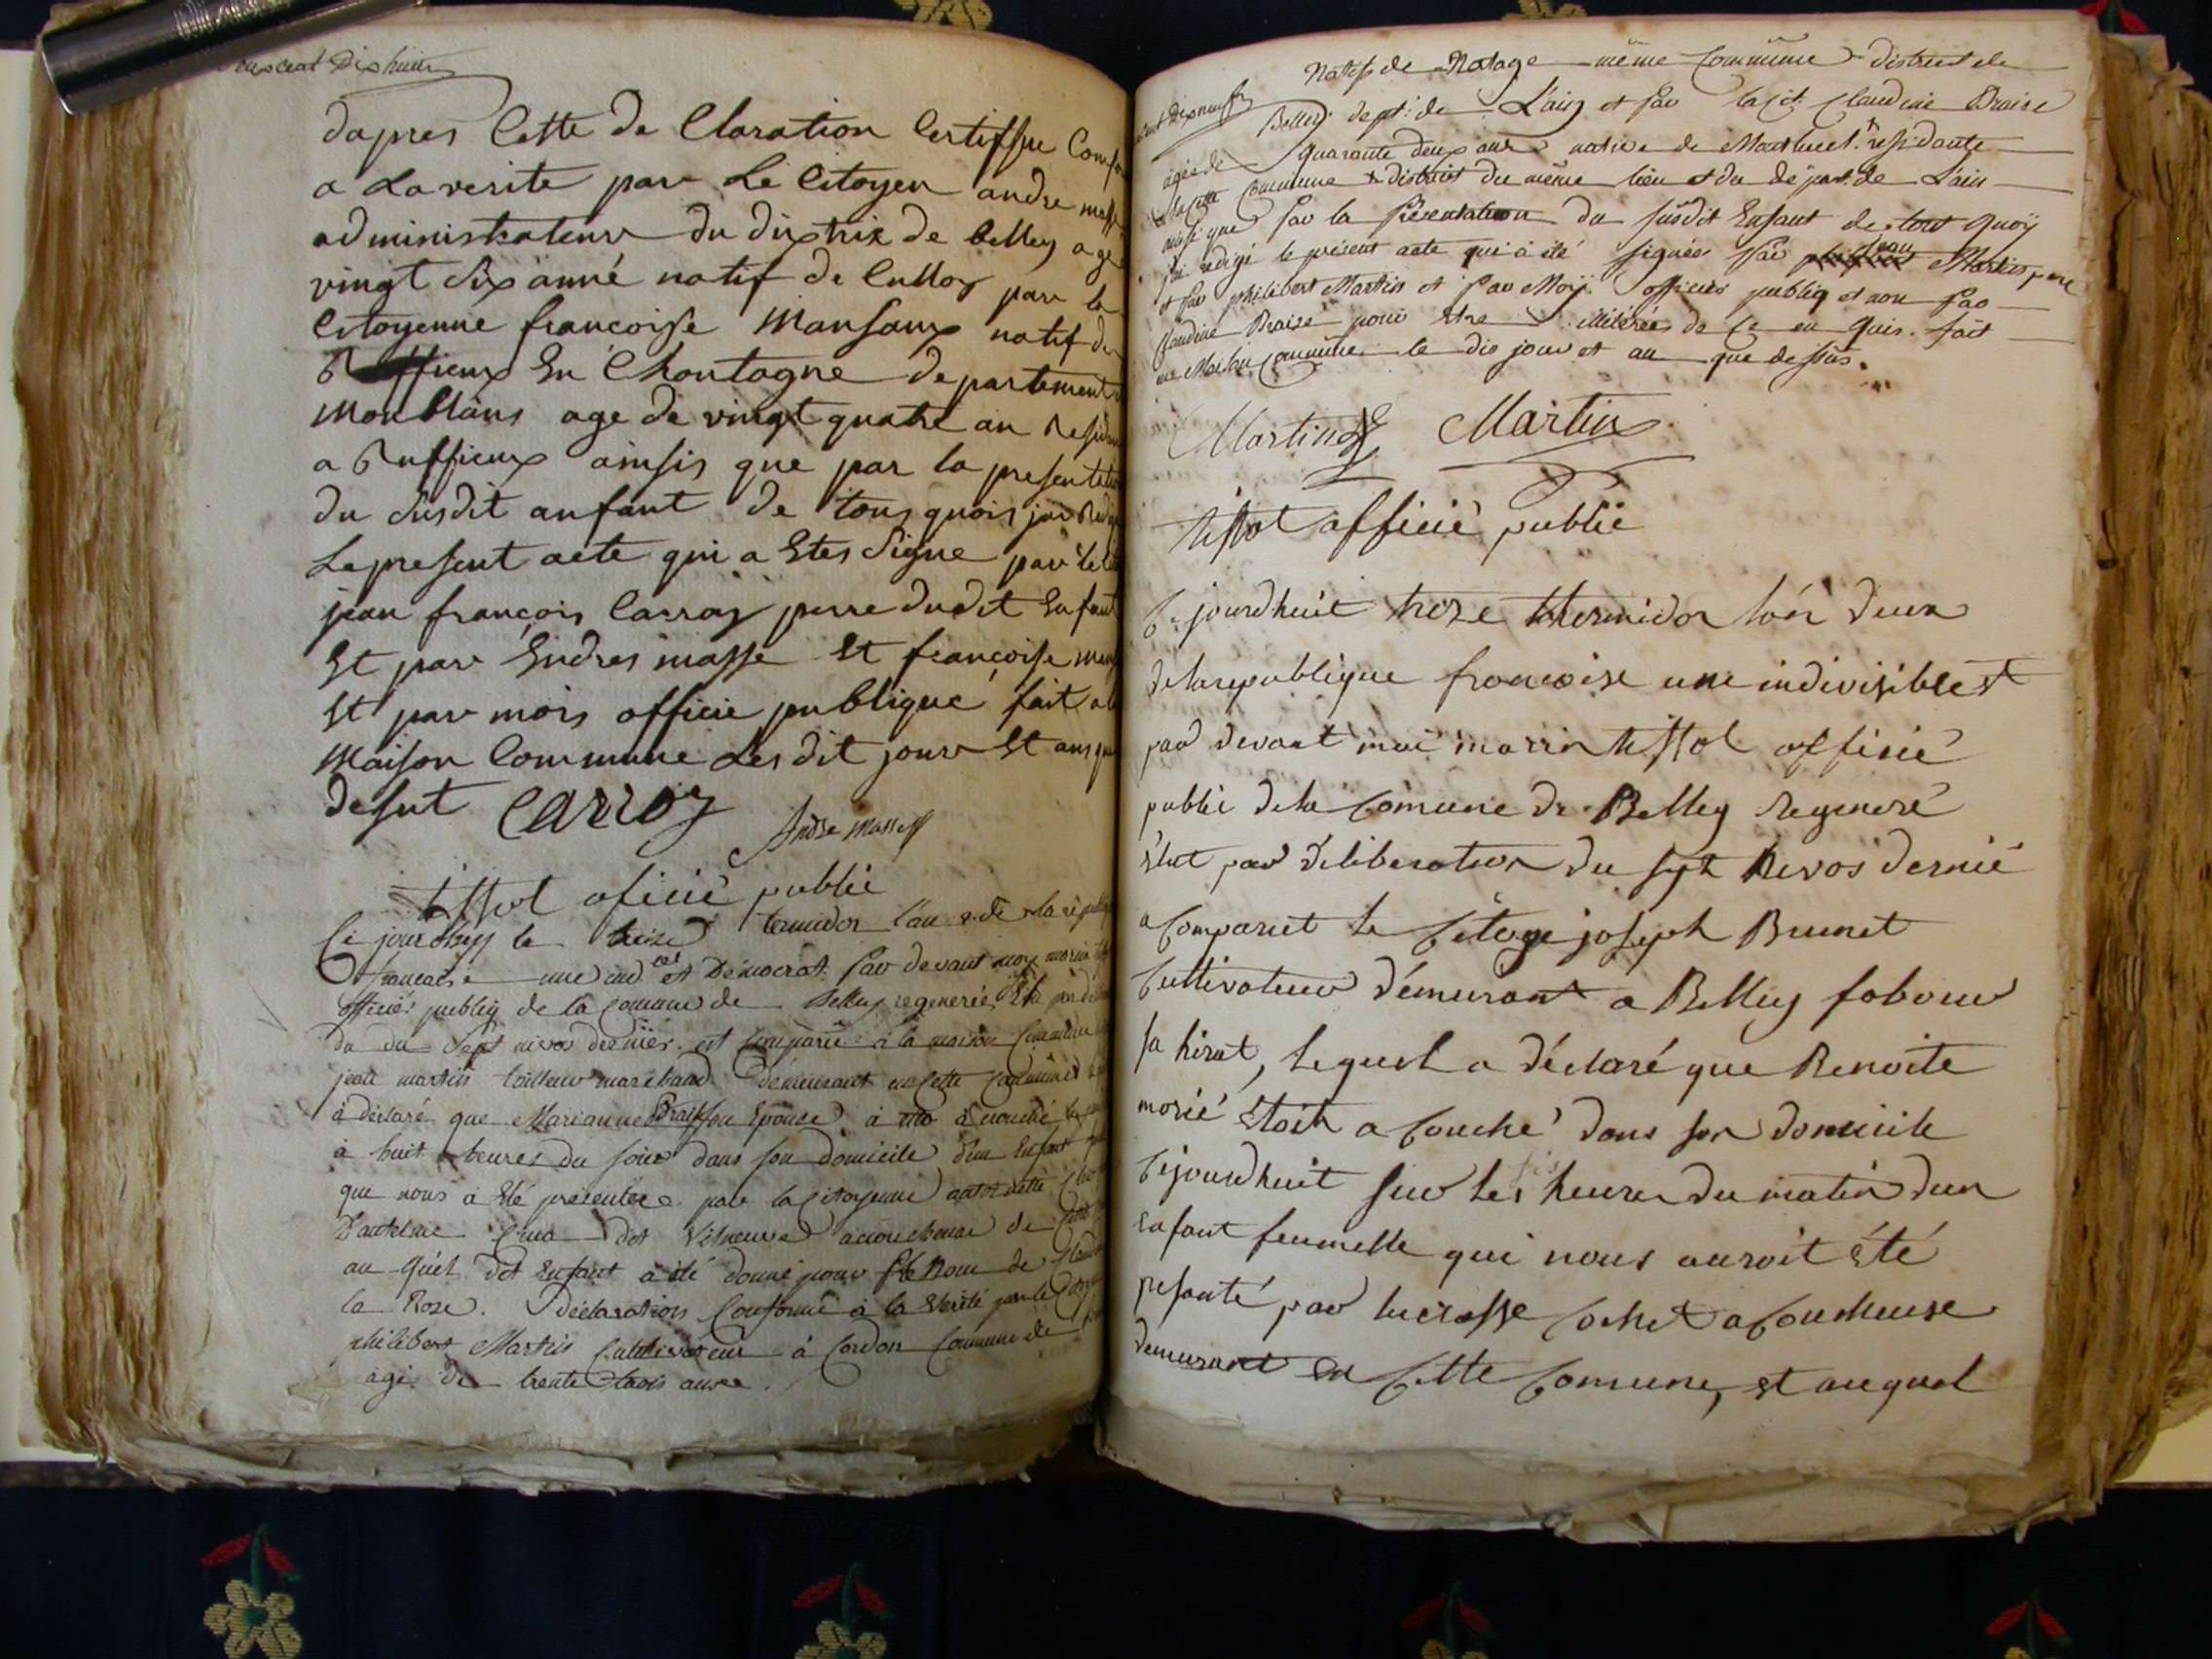 cent Dix huit
dapres Cette de Claration Certiffue
a La verite par Le Citoyen andre
administrateur du distrix de belley age
vingt six anné natif de Culloz par la
Citoyenne francoise Mansaux natif de
Ruffieux En Choutagne departement
Monblans age de vingt quatre an
a Ruffieux ainsis que par la presentati
du Susdit anfant de tous quois jai
Le present acte qui a Etes Signe par le
jean françois Carroz perre dudit Enfant
Et par Endres masse Et françoise
Et par mois officie publique fait a
Maison Commune Les dit jour Et ans que
desut Carroz
Andre Masse
tissot oficié public
Ce jourdhuy le treize termidor l'an 2 de la
francaise une ind et Démocrat. par devant moy
officier publiq de la commune de Belley regenerée
du du sept nivos dernier. est comparu à la maison Commune
jean martin tailleur marchand demeurant en cette Commune
à déclaré que Marianne Braise son Epouse à accouché
à huit heures du soir dans son domicile d'un Enfant
que nous à été présentée par la Citoyenne
veuve accoucheuse de
au quel dit Enfant à été donné pour le Nom de
la Roze. Déclaration Conforme à la verité par le
philibert Martin Cultivateur à Cordon Commune de
agé de trente trois ans
cent Dixneuf
Natif de Natage même Commune District de
Belley dept. de L'ain et par la cit. Claudine Braise
agée de quarante deux ans native de residante
en cette Commune & district du même lieu et du départ. de L'ain
ainsi que par la présentation du susdit Enfant de tout quoÿ
j'ai redigé le présent acte qui à été signée par jean Martin pere
et par philibert Martin et par Moÿ officier publiq et non par
Claudine Braise pour être illitérée de ce en quis. fait
en Maison Commune le dis jour et an que dessus.
Martin Martin
tissot officié public
Ce jourdhuit treze thermidor l'an deux
de la republique francoise une indivisible et
par devant moi marin tissot officié
public de la Comune de Belley regeneré
élut par déliberation du sept Nivos dernié
a Comparut le Citoye joseph Brunet
Cultivateur démurant a Belley fobour
, lequel a déclaré que Benoite
morié Etoit a Couché dans son domicile
Cejourdhuit sur les heures du matin dun
enfant feumelle qui nous auroit été
pesanté par lucresse Cochet a Coucheuse
demurant en Cette Comune, et auquel